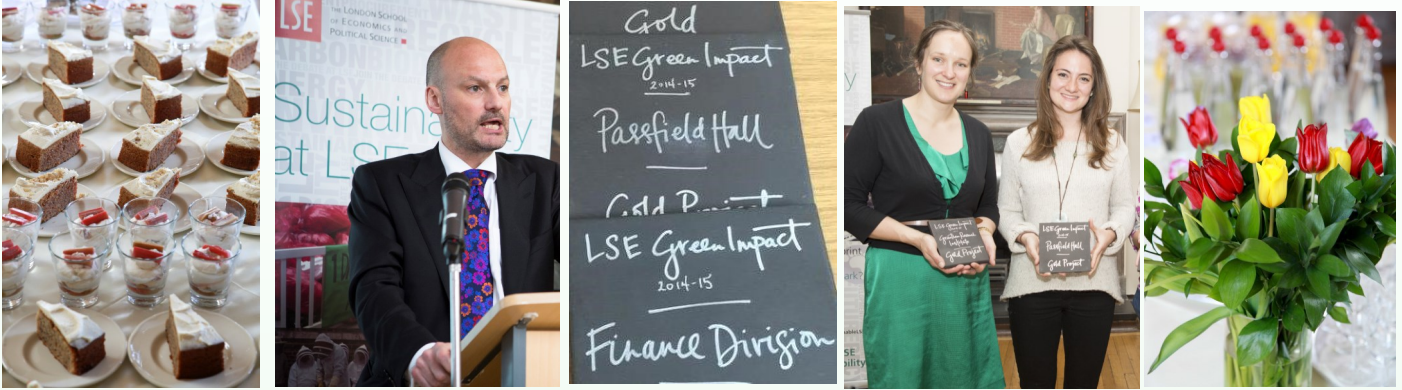 LSE
THE LONDON SCHOOL
OF ECONOMICS AND
POLITICAL SCIENCE
Sustainability
at LSE
Gold
LSE Green Impact
2014-15
Passfield Hall
Gold Project
LSE Green Impact
2014-15
Finance Division
LSE Green Impact
Gold Project
LSE Green Impact
2014-15
Passfield Hall
Gold Project